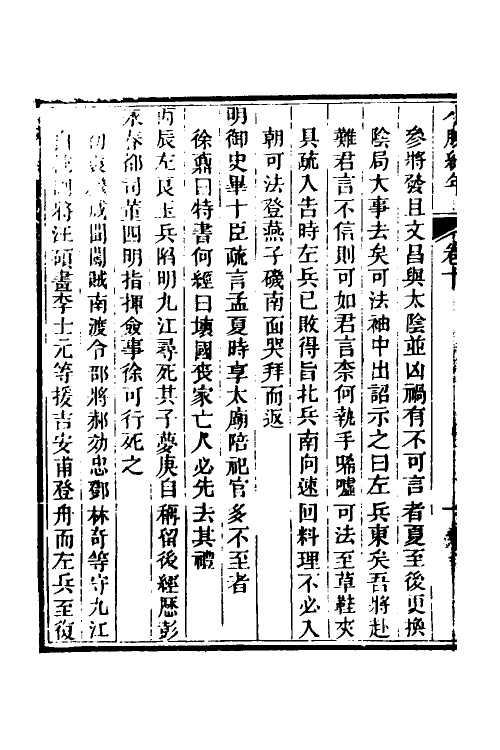 小腆紀年
卷十
參將發且文昌與太陰並凶禍有不可言者夏至後更換
陰局大事去矣可法袖中出詔示之曰左兵東矣吾將赴
難君言不信則可如君言柰何執手唏噓可法至草鞋夾
具疏入告時左兵已敗得旨北兵南向速回料理不必入
朝可法登燕子磯南面哭拜而返
明御史畢十臣疏言孟夏時享太廟陪祀官多不至者
徐鼒曰特書何經曰壞國喪家亡人必先去其禮
丙辰左良玉兵陷明九江尋死其子夢庚自稱留後經歷彭
永春都司董四明指揮僉事徐可行死之
初袁咸聞闖賊南渡令部將郝効忠鄧林奇等守九江
自將汪碩畫李士元等援吉安甫登舟而左兵至復